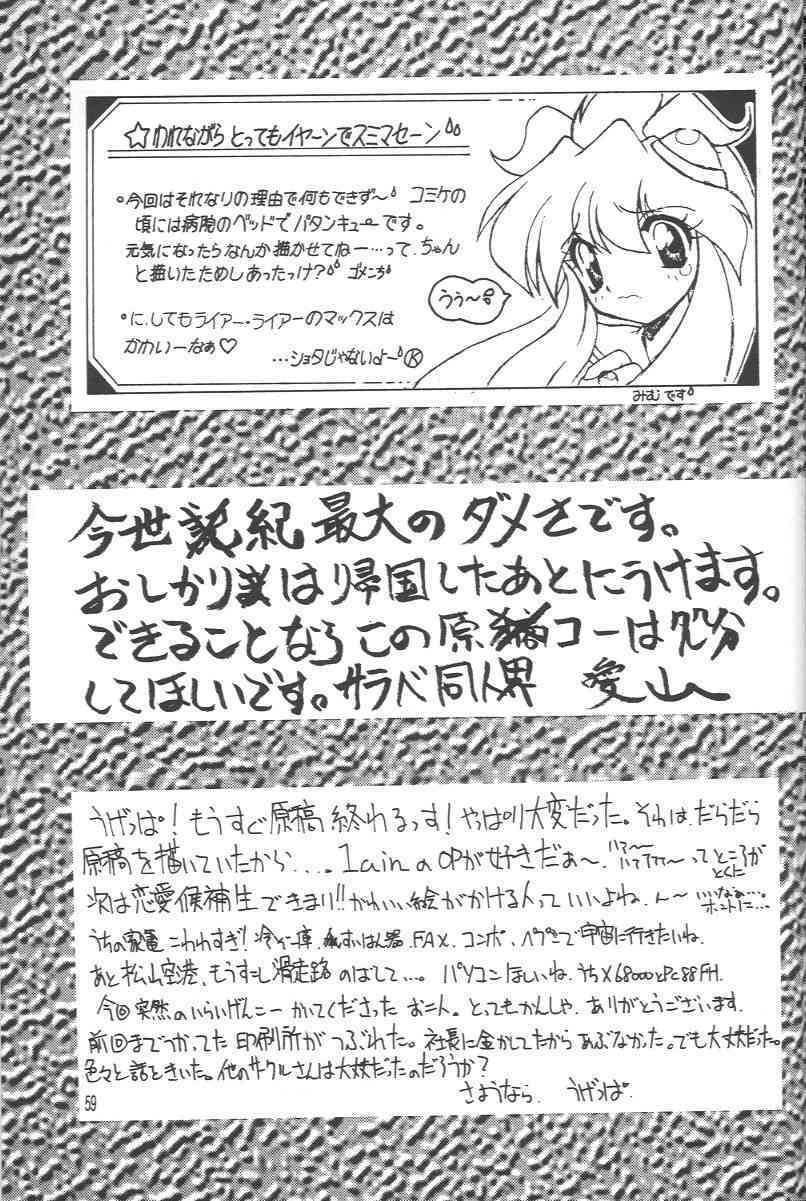 ☆われながらとってもイヤーンでスミマセーン
•今回はそれなりの理由で何もできず〜 コミケの
頃には病院のベッドでバタンキューです。
元気になったらなんか描かせてねー…って、ちゃん
と描いたためしあったっけ? ゴメンち
•に、してもライアー・ライアーのマックスは
かわいーなぁ♡
…ショタじゃないよ〜 Ⓡ
うぅ〜
みむです
今世紀最大のダメさです。
おしかりは帰国したあとにうけます。
できることならこの原コーは処分
してほしいです。サラバ同人界 愛山
うげっぱ!もうすぐ原稿終れるっす!やっぱり大変だった。それは、だらだら
原稿を描いていたから....。lainのOPが好きだぁ〜. って ところが とくに
次は恋愛候補生できまり!!かわいい絵がかける人っていいよね、ん〜 いいなぁ… ホントに…
うちの家電こわれすぎ!冷ぞー庫、すいはん器、FAX、コンポ、 宇宙に行きたいね.
あと松山空港、もうすこし滑走路のばして…。パソコンほしいね、うちX68000とPC88FH.
今回突然のいらいげんこー かいてくださった お二人。とってもかんしゃ、ありがとうございます.
前回までつかってた印刷所がつぶれた。社長に金かしてたからあぶなかった。でも大丈夫だった。
色々と話をきいた。他のサークルさんは大丈夫だったのだろうか?
さようなら、うげっぱ.
59